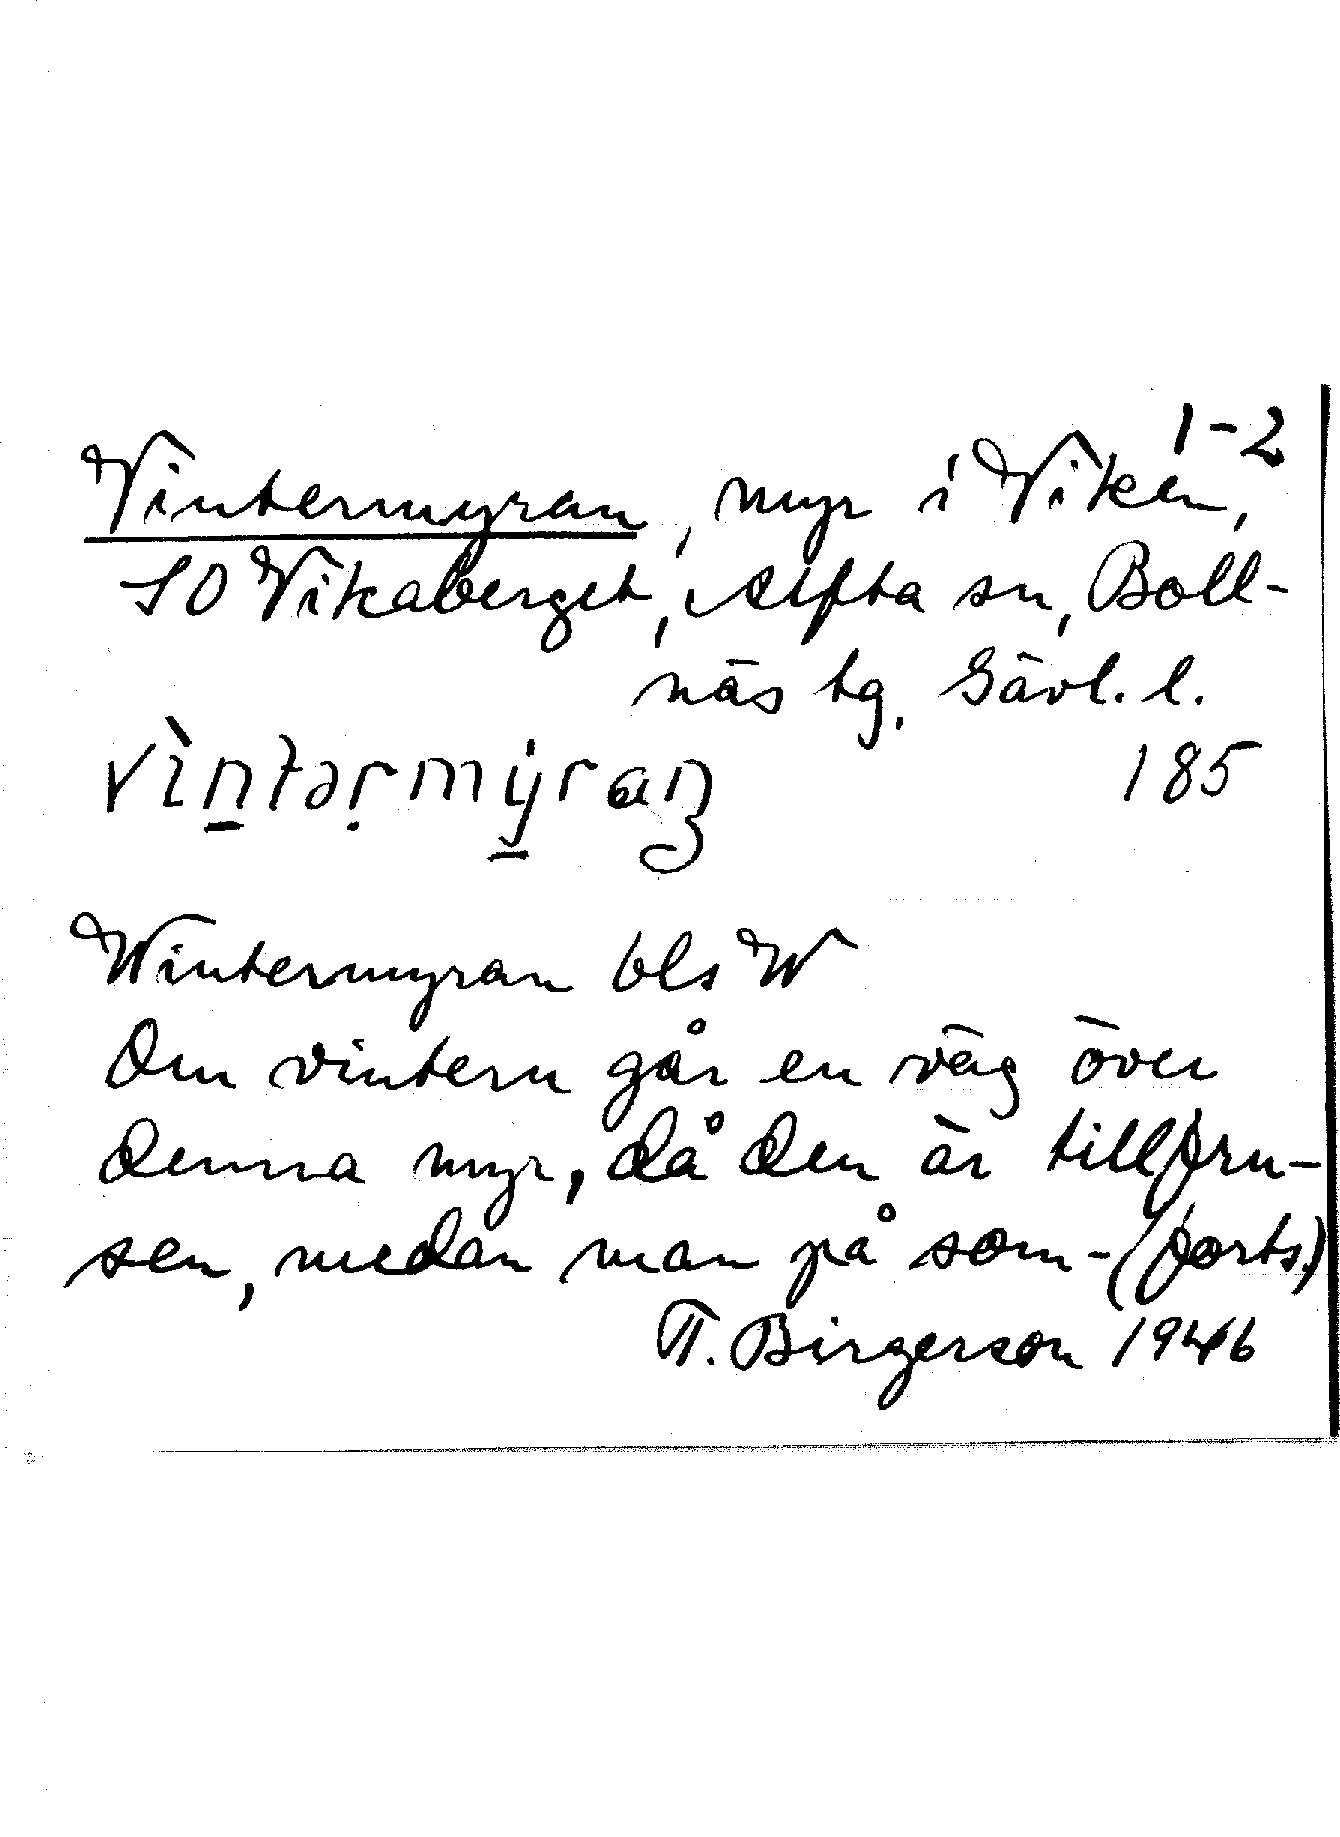 1-2
Vintermyran, myr i Viken,
SO Vikaberget, Alfta sn, Boll-
näs tg. Gävl. l.
vìn̠təṛmẏ̠raɲ 185
Wintermyran bls W
Om vintern går en väg över
denna myr, då den är tillfru-
sen, medan man på som- (forts.)
T. Birgerson 1946